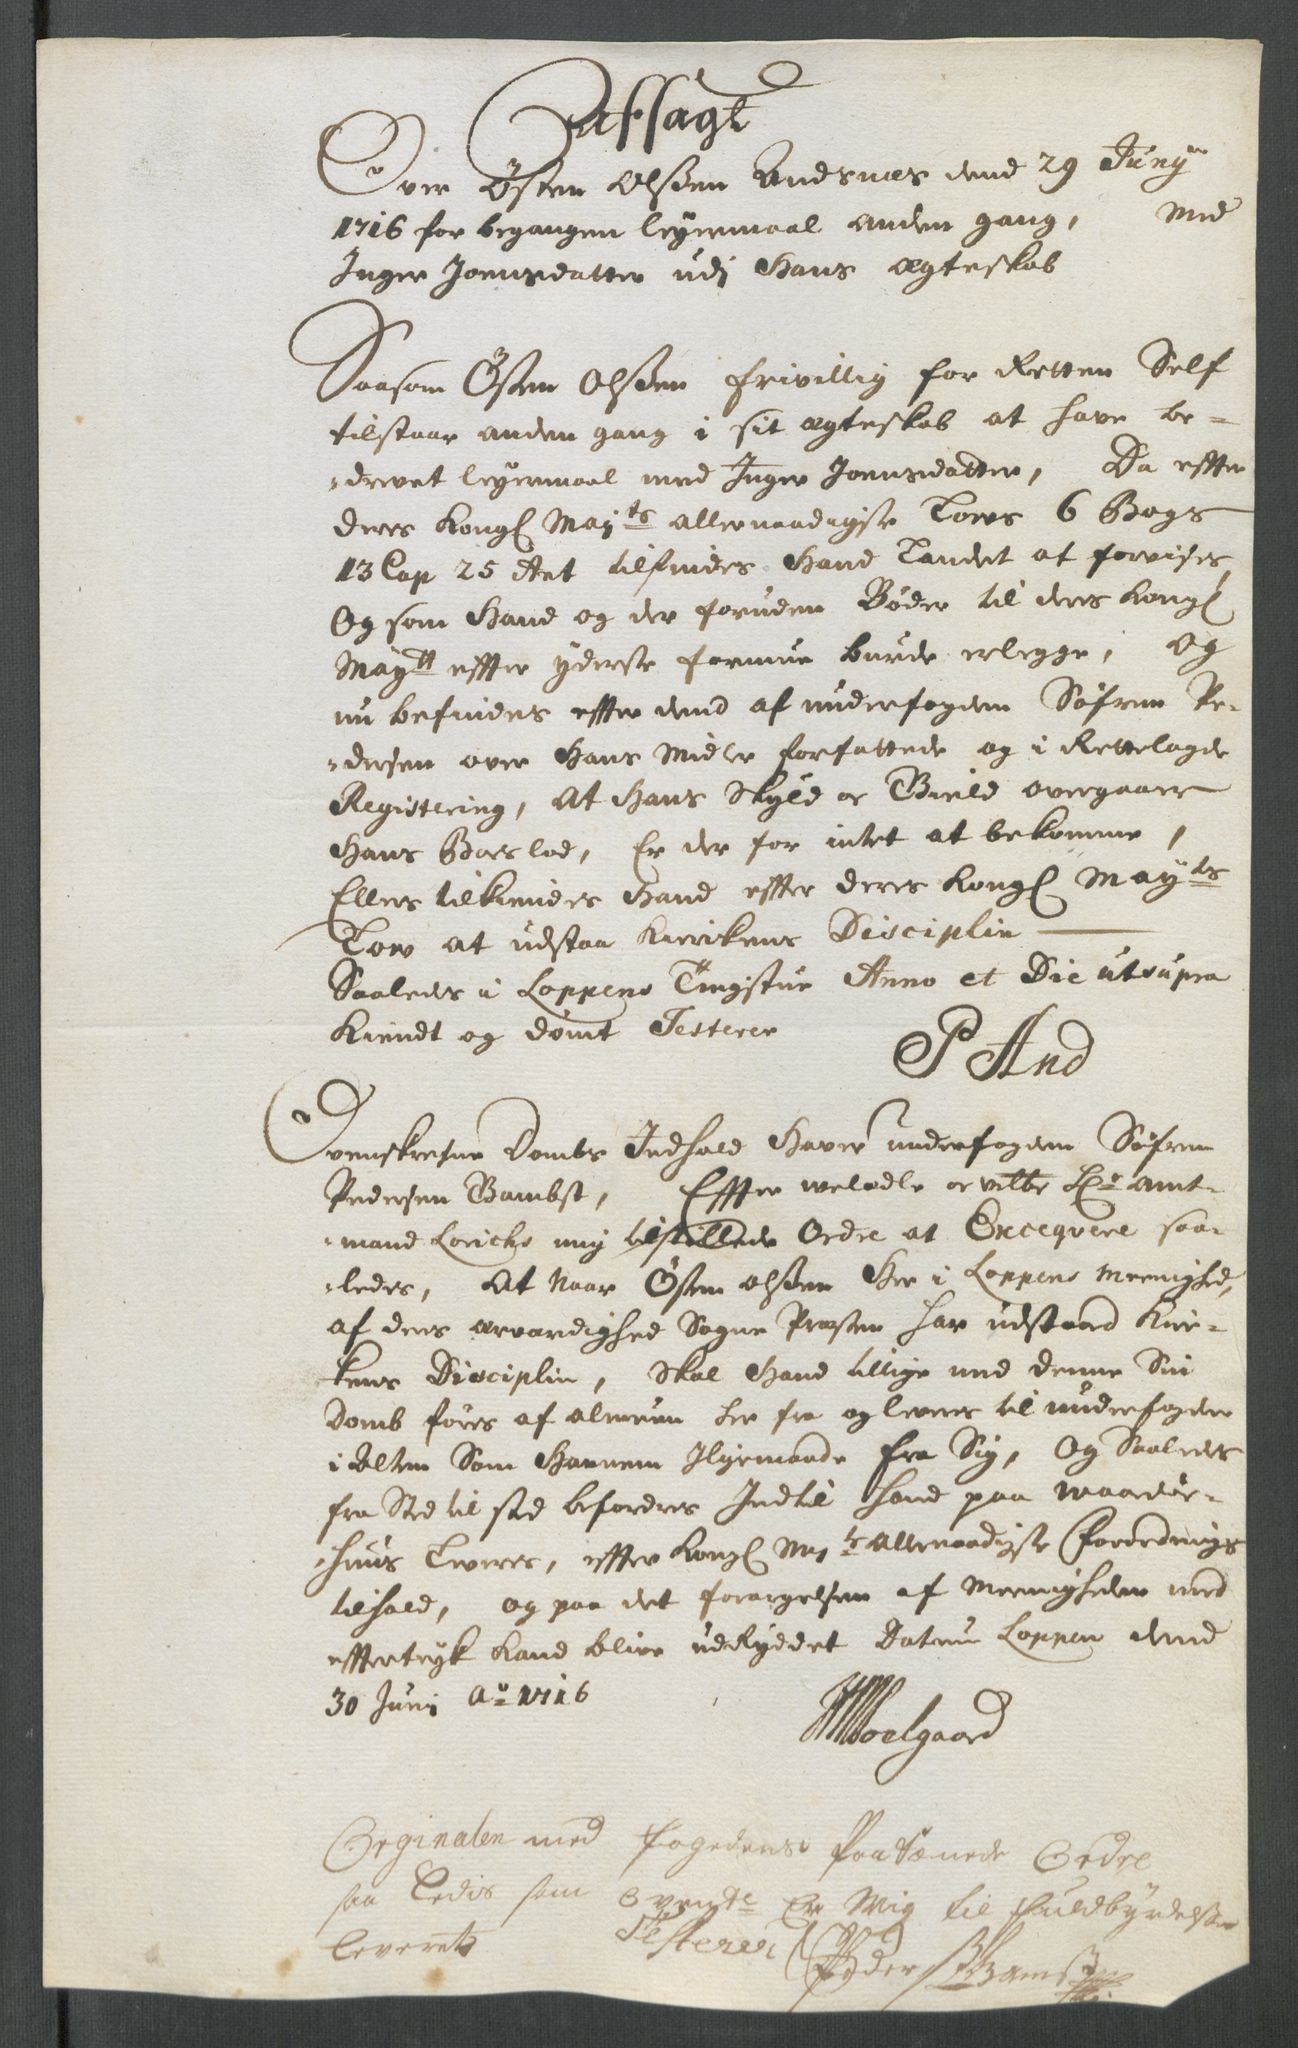 Affsagt
Over Østen Olsßen Andsnæs dend 29 Junÿ
1716 for begangen leÿermaal anden gang, Med
Inger Joensdatter udj Hans ægteskab
Saasom Østen Olsßen frivillig for Retten Self
tilstaar anden gang i sit ægteskab at have be-
-drevet leÿermaal med Inger Joensdatter, Da effter
deres Kongl Maÿts allernaadigste Lovs 6 Bogs
13 Cap 25 Art tilfindes Hand Landet at forvises,
Og som Hand og der foruden Bøder til deres Kongl
Maÿtt effter ÿderste formue burde erlegge, Og
nu befindes effter dend af underfogden Søfren Pe-
-dersen over Hans Midler forfattede og i Rettelagde
Registering, At Hans Skÿld oc Gield overgaar
Hans Boeslod, Er der for intet at bekomme,
Ellers tilkiendes Hand effter deres Kongl Maÿts
Lov at udstaa Kierkens Disciplin
Saaledes i Loppens Tingstue Anno et Die ut supra
Kiendt og dømt Testerer
P And
Ovenskrefne Dombs Indhold Haver underfogden Søfren
Pedersen Bambst, Effter welædle oc velbr Hr amt-
-mand Lorichs mig tilstillede Ordre at Exceqvere saa-
-ledes, At Naar Østen olsßen Her i Loppens Meenighed,
af deris ærværdighed Sogne Præsten har udstaaed Kier-
kens Disciplin, Skal Hand tillige med denne Sin
Domb føres af almuen her fra og leveres til underfogden
i Alten Som Hannem Ilgemaade fra Sig, Og Saaledes
fra Sted til sted befordres Indtil Hand paa Waardøe-
-huus Leveres, effter Kongl Mayts Allernaadigste Forordnings
tilhold, og paa det forargelsen af Meenigheden med
effterteÿk Kand blive udRÿddet Datum Loppen dend
30 Junj Ao 1716
HMoelgaard
Orginalen med fogedens Paateignede Ordre
saa Ledis som Ovente Er Mig til fuldbÿrdelße
leveret Testerer Peder Bamst